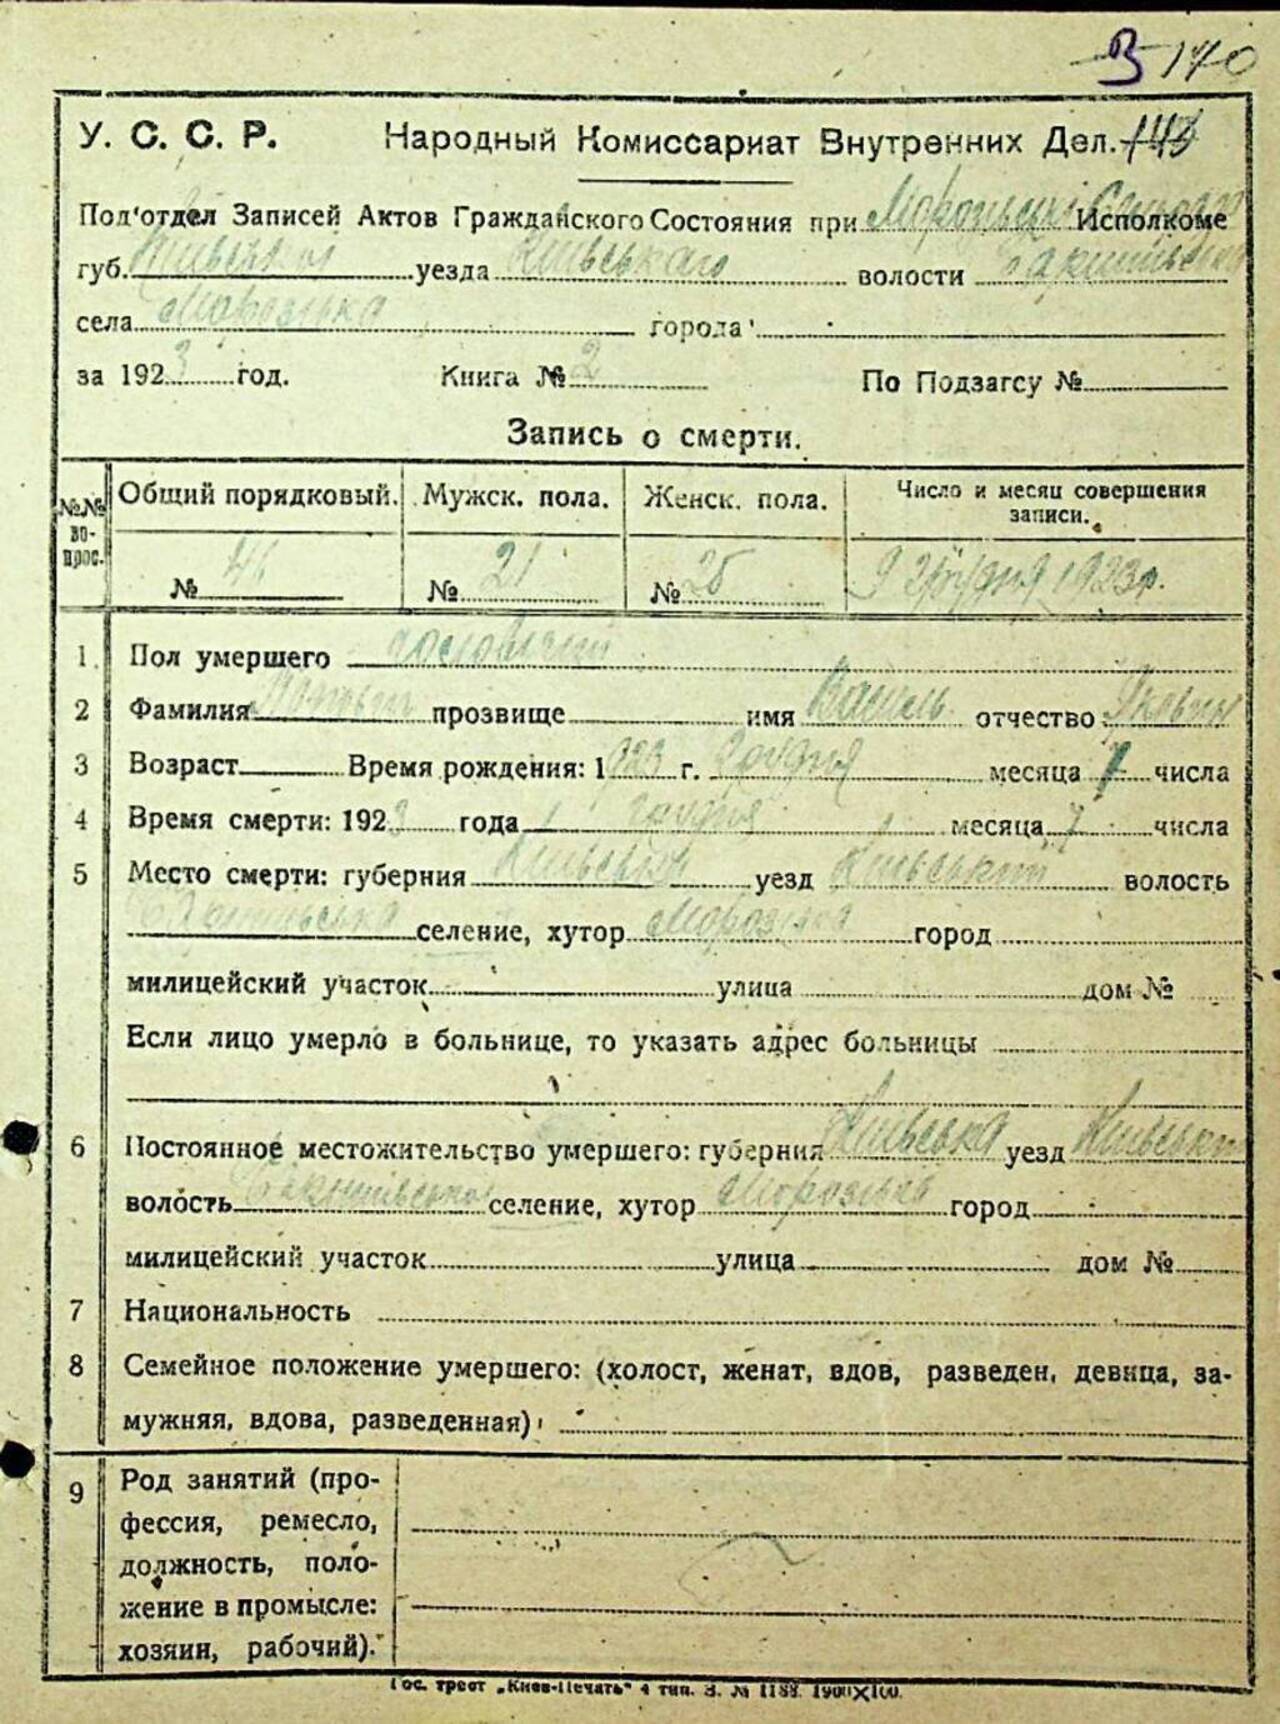 В 140
У. С. С. Р. Народный Комиссариат Внутренних Дел. 143
Под'отдел Записей Актов Гражданского Состояния при Исполкоме
губ. уезда Київського волости
села Морозівка города
за 1923 год. Книга № 2 По Подзагсу №
Запись о смерти.
№№ вопрос. Общий порядковый. Мужск. пола. Женск. пола. Число и месяц совершения записи.
№ 46 № 21 № 25 9 грудня 1923 р.
1 Пол умершего
2 Фамилия прозвище имя Василь отчество
3 Возраст Время рождения: 1923 г. грудня месяца 1 числа
4 Время смерти: 1923 года грудня месяца 7 числа
5 Место смерти: губерния уезд Київський волость
селение, хутор Морозівка город
милицейский участок улица дом №
Если лицо умерло в больнице, то указать адрес больницы
6 Постоянное местожительство умершего: губерния Київська уезд Київський
волость селение, хутор Морозівка город
милицейский участок улица дом №
7 Национальность
8 Семейное положение умершего: (холост, женат, вдов, разведен, девица, за-
мужняя, вдова, разведенная)
9 Род занятий (про-
фессия, ремесло,
должность, поло-
жение в промысле:
хозяин, рабочий).
Гос. трест „Киев-Печать" 4 тип. З. № 1188. 1900Х100.